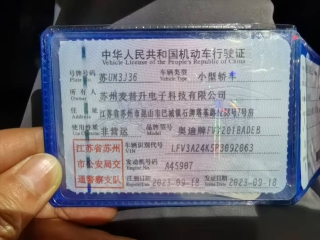 中华人民共和国机动车行驶证
Vehicle License of the People's Republic of China
号牌号码 苏UK3J36 车辆类型 小型轿车
Plate No. Vehicle Type
所有人 苏州麦普升电子科技有限公司
Owner
住址 江苏省苏州市昆山市巴城镇
Address
使用性质 非营运 品牌型号 奥迪牌
Use Character Model
江苏省苏州 车辆识别代号 LFV3AZ4K5P3092063
市公安局交 VIN
通警察支队 发动机号码 A45907
Engine No.
注册日期 2023-09-18 发证日期 2023-09-18
Register Date Issue Date